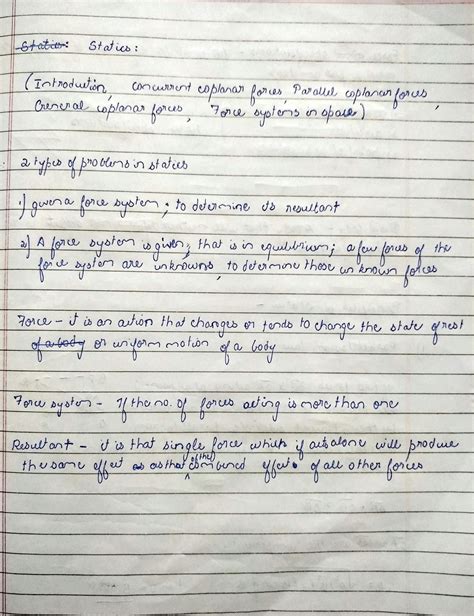 Statics: Statics:
(Introduction, concurrent coplanar forces, Parallel coplanar forces,
General coplanar forces, Force systems in space)
2 types of problems in statics
1) given a force system; to determine its resultant
2) A force system is given; that is in equilibrium; a few forces of the
force system are unknowns, to determine those unknown forces
Force - it is an action that changes or tends to change the state of rest
of a body or uniform motion of a body
Force system - If the no. of forces acting is more than one
Resultant - it is that single force which if acts alone will produce
the same effect as as that of (the) combined effect of all other forces